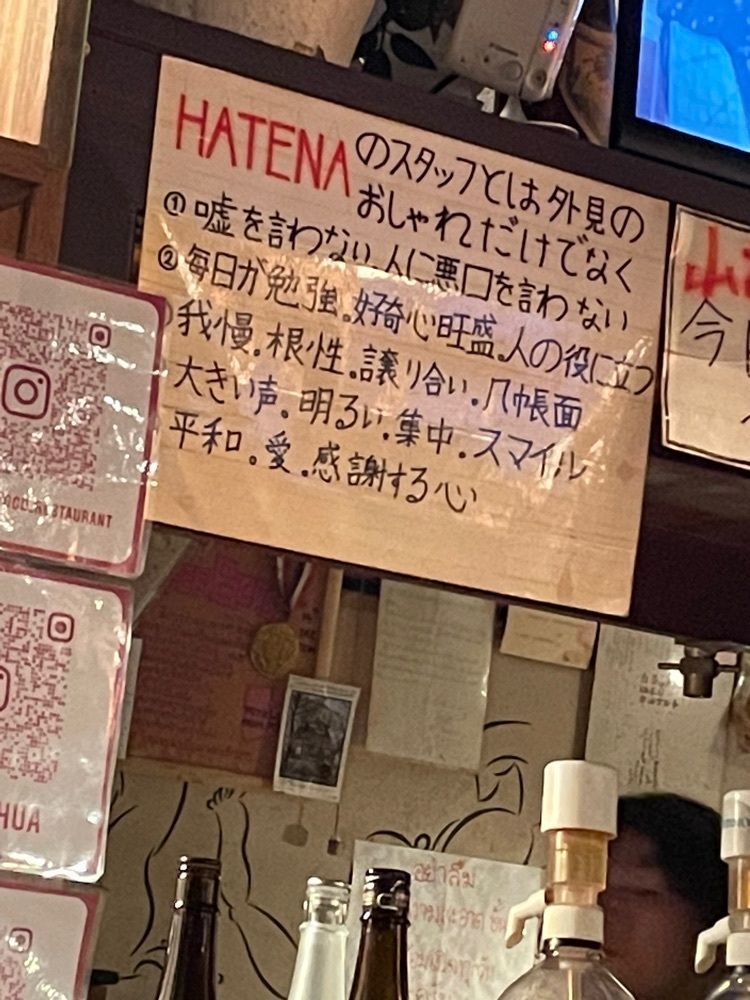 HATENAのスタッフとは外見の
おしゃれだけでなく
① 嘘を言わない 人に悪口を言わない
② 毎日が勉強。好奇心旺盛。人の役に立つ
我慢。根性。譲り合い。几帳面
大きい声。明るい。集中。スマイル
平和。愛。感謝する心
山
今
RESTAURANT
HUA
อย่าลืม